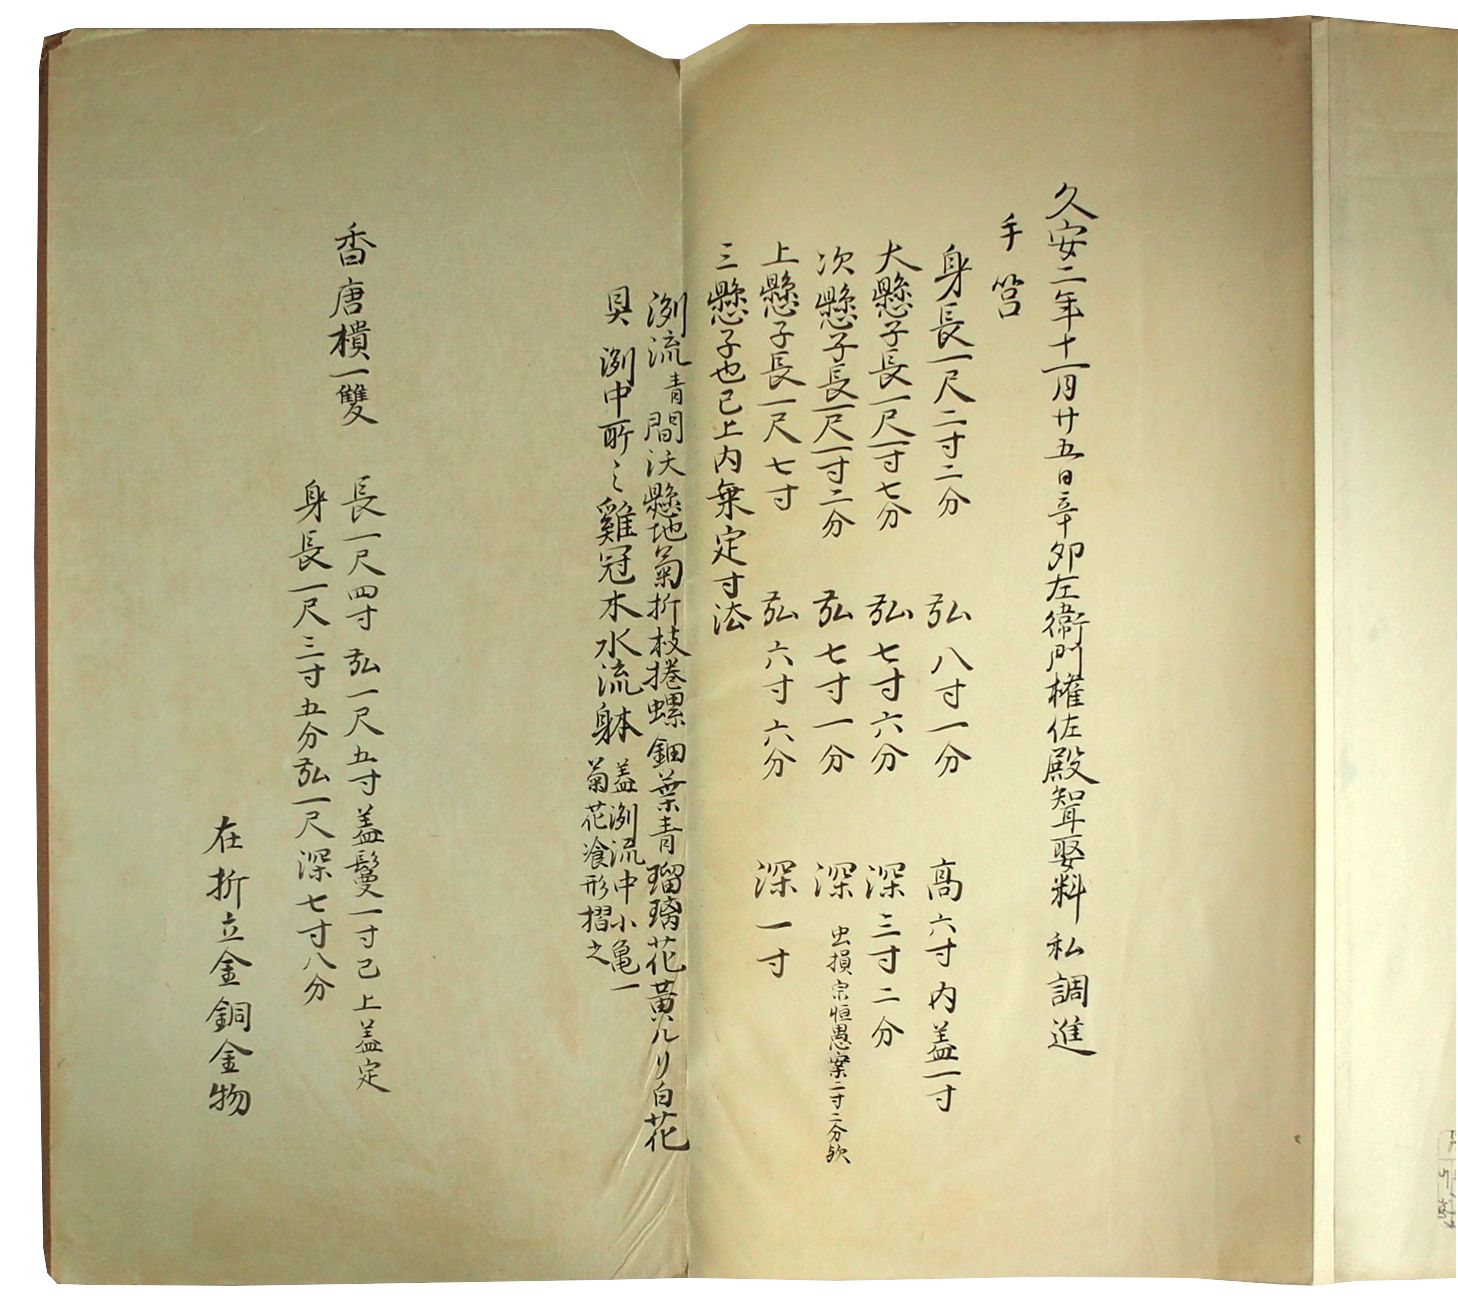 久安二年十一月廿五日辛卯左衛門権佐殿聟娶料 私調進
手筥
身長一尺二寸二分 弘八寸一分 高六寸内盖一寸
大懸子長一尺一寸七分 弘七寸六分 深三寸二分
次懸子長一尺一寸二分 弘七寸一分 深 虫損宗恒愚案二寸二分欤
上懸子長一尺七寸 弘六寸六分 深一寸
三懸子也已上内乗定寸法
洌流青間沃懸地菊折枝捲螺鈿葉青瑠璃花黄ルリ白花
貝 洌中所々雞冠木水流躰 盖洌流中小亀一
菊花飡形摺之
香唐樻一雙 長一尺四寸弘一尺五寸盖鬘一寸已上盖定
身長一尺三寸五分弘一尺深七寸八分
在折立金銅金物